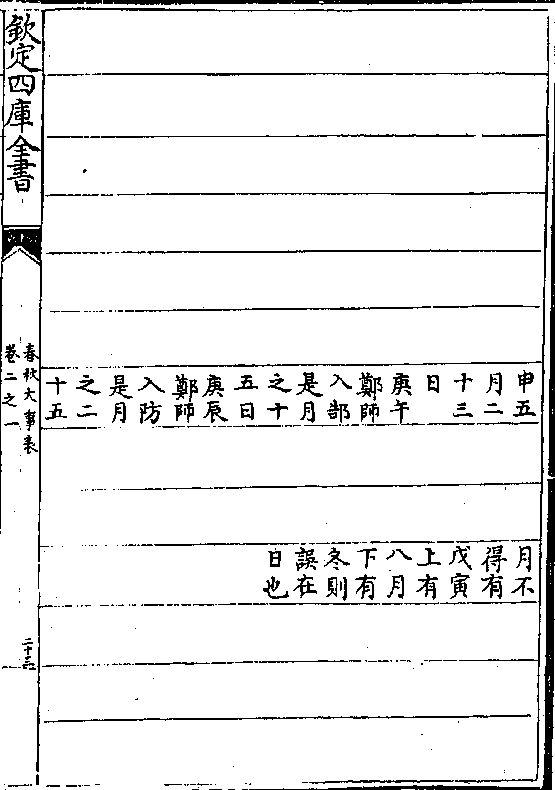 申五
月二
十三
日
庚午
鄭師
入郜
是月
之十
五日
庚辰
鄭師
入防
是月
之二
十五
月不
得有
戊寅
上有
八月
下有
冬則
誤在
日也
欽定四庫全書
春秋大事表
卷二之一
二十三